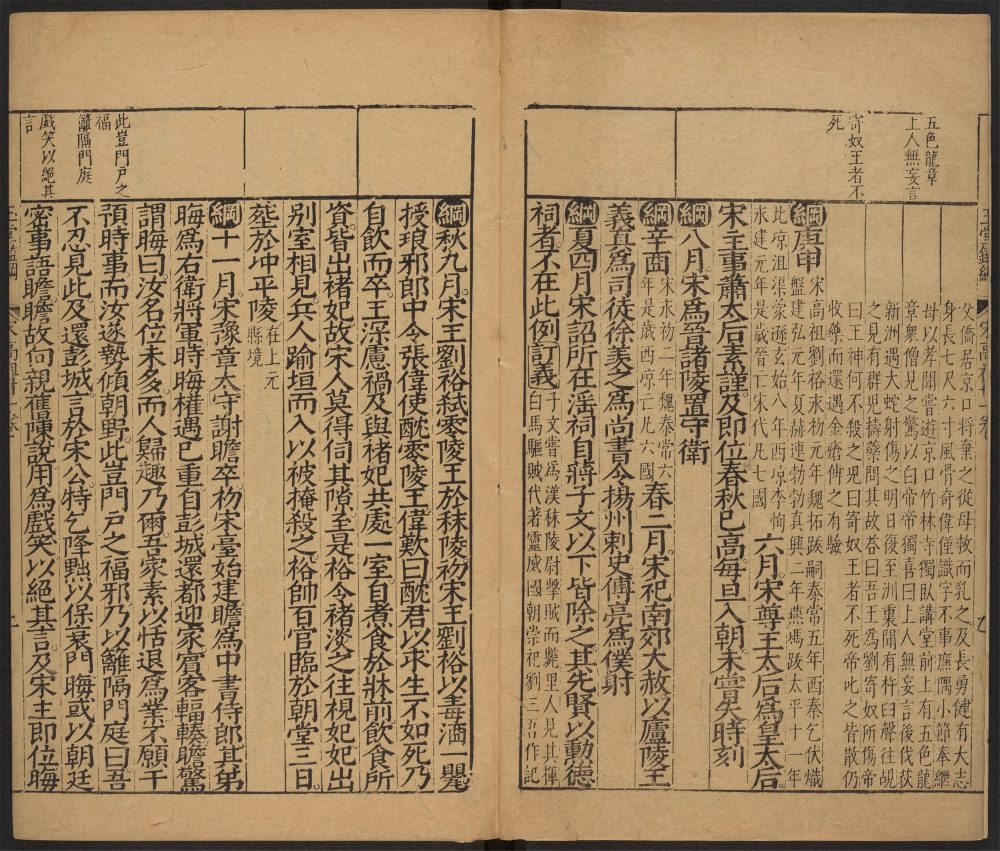 五色龍章
上人無妄言
寄奴王者不
死
父僑居京口將棄之從母救而乳之及長勇健有大志
身長七尺六寸風骨奇偉僅識字不事廉隅小節奉繼
母以孝聞嘗遊京口竹林寺獨臥講堂前上有五色龍
章衆僧見之驚以白帝帝獨喜曰上人無妄言後伐荻
新洲遇大蛇射傷之明日復至洲裏聞有杵臼聲往覘
之見有群兒擣藥問其故荅曰吾王爲劉寄奴所傷帝
曰王神何不殺之兒曰寄奴王者不死帝叱之皆散仍
收藥而還遇金瘡傅之有驗
綱庚申
宋高祖劉裕永初元年魏拓跋嗣泰常五年西秦乞伏熾
盤建弘元年夏赫連勃勃真興二年燕馮跋太平十一年
北凉沮渠蒙遜玄始八年西凉李恂
永建元年是歲晉亡宋代凡七國
六月宋尊王太后爲皇太后
宋主事蕭太后素謹及即位春秋已高每旦入朝未嘗失時刻
綱八月宋爲晉諸陵置守衛
綱辛酉
宋永初二年魏泰常六
年是歲西凉亡凡六國
春二月宋祀南郊大赦以廬陵王
義眞爲司徒徐羡之爲尚書令揚州刺史傅亮爲僕射
綱夏四月宋詔所在淫祠自蔣子文以下皆除之其先賢以勳德
祠者不在此例訂義
子文嘗爲漢秣陵尉擊賊而斃里人見其揮
白馬驅賊代者靈威國朝崇祀劉三吾作記
此豈門戶之
福
籬隔門庭
戲笑以絕其
言
綱秋九月宋王劉裕弑零陵王於秣陵初宋王劉裕以毒酒一甖
授琅邪郎中令張偉使酖零陵王偉歎曰酖君以求生不如死乃
自飲而卒王深慮禍及與褚妃共處一室自煮食於牀前飲食所
資皆出褚妃故宋人莫得伺其隙至是裕令褚淡之往視妃妃出
别室相見兵人踰垣而入以被掩殺之裕帥百官臨於朝堂三日
塟於冲平陵
在上元
縣境
綱十一月宋豫章太守謝瞻卒初宋臺始建瞻爲中書侍郎其弟
晦爲右衛將軍時晦權遇已重自彭城還都迎家賓客輻輳瞻驚
謂晦曰汝名位未多而人歸趣乃爾吾家素以恬退爲業不願干
預時事而汝遂勢傾朝野此豈門戶之福邪乃以籬隔門庭曰吾
不忍見此及還彭城言於宋公特乞降黜以保衰門晦或以朝廷
密事語瞻瞻故向親舊陳說用爲戲笑以絕其言及宋主即位晦